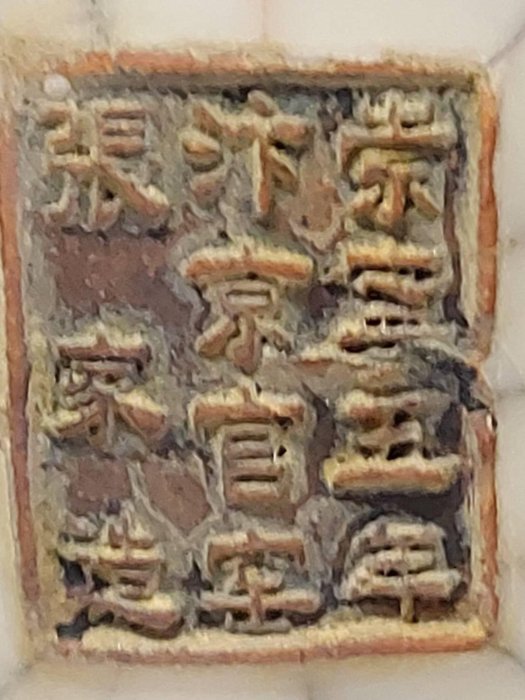 崇寧五年
汴京官窑
張家造